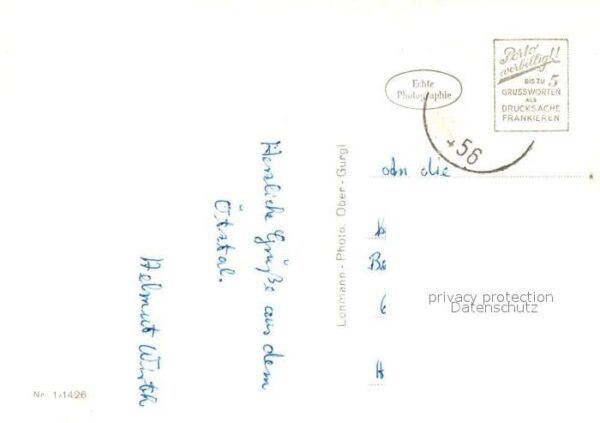 Herzliche Grüße aus dem
Ötztal.
Helmut Wirth
Nr. 1/1426
Lohmann - Photo, Ober - Gurgl
Echte
Photographie
Porto
verbilligt!!
BIS ZU 5
GRUSSWORTEN
ALS
DRUCKSACHE
FRANKIEREN
56
An die
privacy protection
Datenschutz